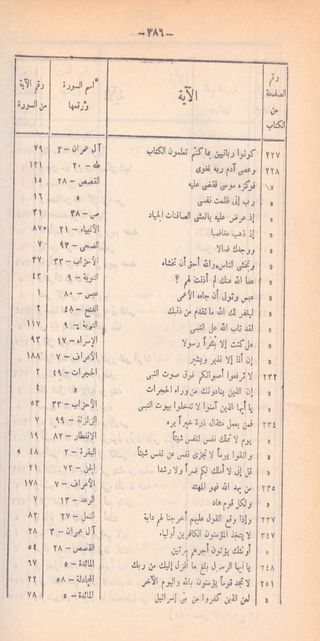 — ٣٨٦ —
رقم الصفحة من الكتاب | الآية | اسم السورة ورقمها | رقم الآية من السورة
٢٢٧ كونوا ربانيين بما كنتم تعلمون الكتاب آل عمران – ٣ ٧٩
٢٢٨ وعصى آدم ربه فغوى طه – ٢٠ ١٢١
» فوكزه موسى فقضى عليه القصص – ٢٨ ١٥
» رب إنى ظلمت نفسى » ١٦
» إذ عرض عليه بالعشى الصافنات الجياد ص – ٣٨ ٣١
» إذ ذهب مغاضبا الأنبياء – ٢١ ٨٧
» ووجدك ضالا الضحى – ٩٣ ٧
» وتخشى الناس والله أحق أن تخشاه الأحزاب – ٣٣ ٣٧
» عفا الله عنك لم أذنت لهم ؟ التوبة – ٩ ٤٣
» عبس وتولى أن جاءه الأعمى عبس – ٨٠ ١
» ليغفر لك الله ما تقدم من ذنبك الفتح – ٤٨ ٢
» لقد تاب الله على النبى التوبة – ٩ ١١٧
» هل كنت إلا بشرا رسولا الإسراء – ١٧ ٩٣
» إن أنا إلا نذير وبشير الأعراف – ٧ ١٨٨
٢٣٢ لا ترفعوا أصواتكم فوق صوت النبى الحجرات – ٤٩ ٢
» إن الذين ينادونك من وراء الحجرات » ٤
» يا أيها الذين آمنوا لا تدخلوا بيوت النبى الأحزاب – ٣٣ ٥٣
٢٣٤ فمن يعمل مثقال ذرة خيرا يره الزلزلة – ٩٩ ٧
» يوم لا تملك نفس لنفس شيئا الانفطار – ٨٢ ١٩
» واتقوا يوما لا تجزى نفس عن نفس شيئا البقرة – ٢ ٤٨
» قل إنى لا أملك لكم ضرا ولا رشدا الجن – ٧٢ ٢١
٢٣٥ من يهد الله فهو المهتد الأعراف – ٧ ١٧٨
» ولكل قوم هاد الرعد – ١٣ ٧
٢٣٧ وإذا وقع القول عليهم أخرجنا لهم دابة النمل – ٢٧ ٨٢
٣٤٧ لا يتخذ المؤمنون الكافرين أولياء آل عمران – ٣ ٢٨
» أولئك يؤتون أجرهم مرتين القصص – ٢٨ ٥٤
٢٤٨ يا أيها الرسول بلغ ما أنزل إليك من ربك المائدة – ٥ ٦٧
٢٥١ لا تجد قوما يؤمنون بالله واليوم الآخر المجادلة – ٥٨ ٢٢
» لعن الذين كفروا من بنى إسرائيل المائدة – ٥ ٧٨